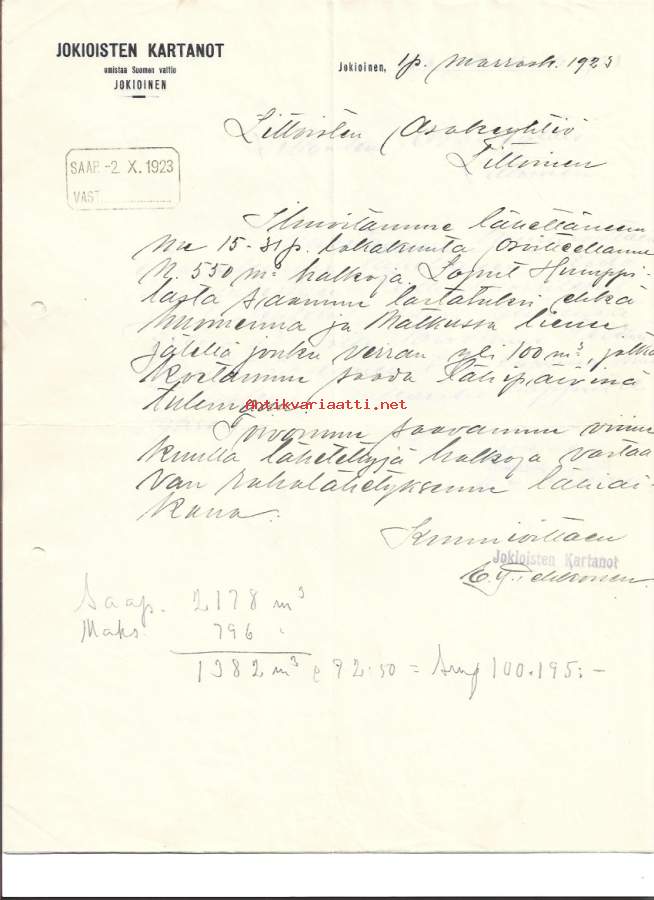 JOKIOISTEN KARTANOT
omistaa Suomen valtio
JOKIOINEN
Jokioinen, 1 p. marrask. 1923
Littoisten Osakeyhtiö
Littoinen
SAAP. -2. X. 1923
VAST.
Ilmoitamme lähettäneem
me 15-31 p. lokakuuta osoitteellanne
N. 550 m³ halkoja. Loput Humppi-
lasta saamme lastatuksi ehkä
huomenna ja Matkussa lienee
jälellä jonku verran yli 100 m³, jotka
koetamme saada lähipäivinä
tulemaan.
Antikvariaatti.net
Toivomme saavamme viime
kuulla lähetettyjä halkoja vastaa
van rahalähetyksenne lähiai-
koina.
Kunnioittaen
Jokioisten Kartanot
Saap. 2178 m³
Maks. 796 "
1382 m³ @ 72.50 = Smk 100.195:-